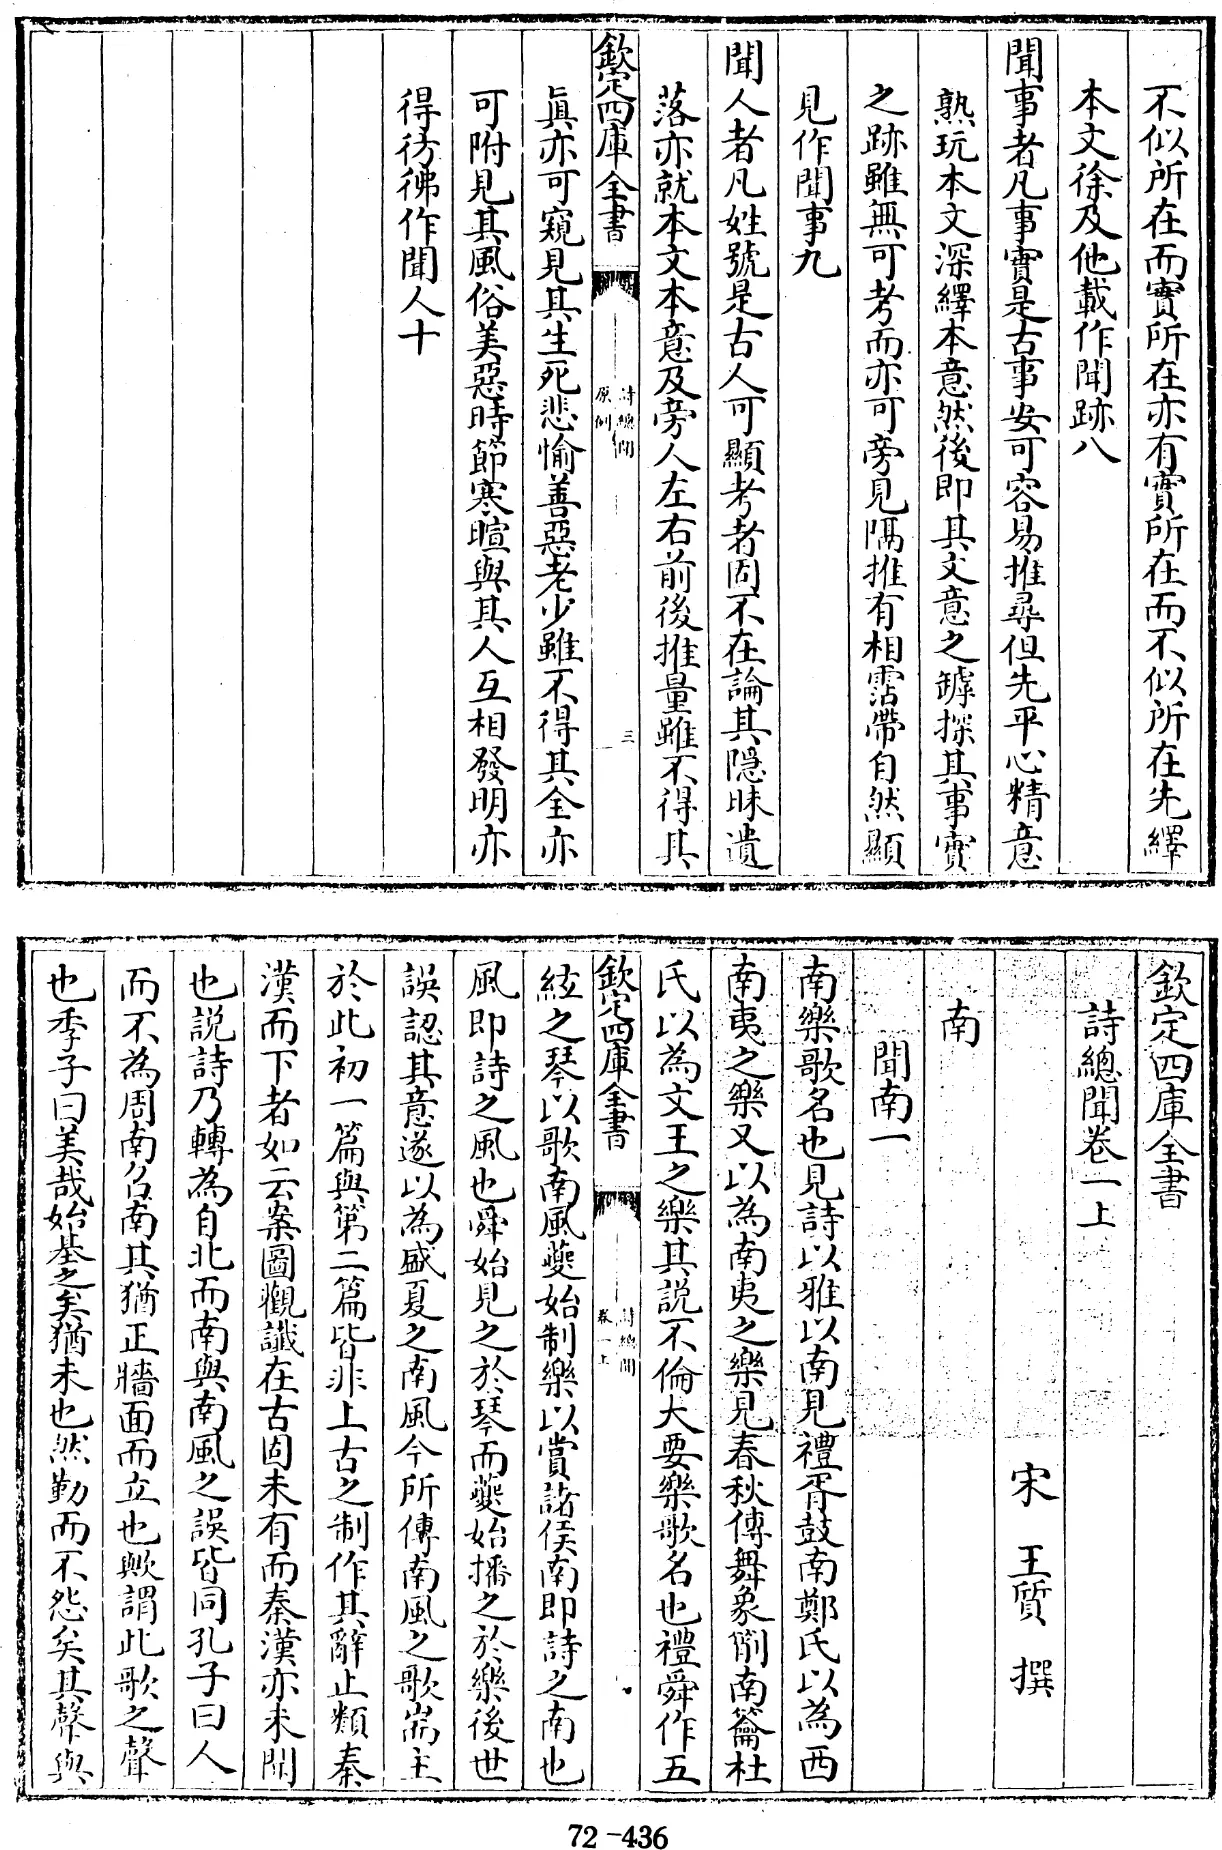 不似所在而實所在亦有實所在而不似所在先繹
本文徐及他載作聞跡八
聞事者凡事實是古事安可容易推尋但先平心精意
熟玩本文深繹本意然後即其文意之罅探其事實
之跡雖無可考而亦可旁見隅推有相霑帶自然顯
見作聞事九
聞人者凡姓號是古人可顯考者固不在論其隱昧遺
落亦就本文本意及旁人左右前後推量雖不得其
欽定四庫全書
詩總聞
原例
三
眞亦可窺見其生死悲愉善惡老少雖不得其全亦
可附見其風俗美惡時節寒暄與其人互相發明亦
得彷彿作聞人十
欽定四庫全書
詩總聞卷一上
宋 王質 撰
南
聞南一
南樂歌名也見詩以雅以南見禮胥鼓南鄭氏以為西
南夷之樂又以為南夷之樂見春秋傳舞象箾南籥杜
氏以為文王之樂其説不倫大要樂歌名也禮舜作五
欽定四庫全書
詩總聞
卷一上
絃之琴以歌南風夔始制樂以賞諸侯南即詩之南也
風即詩之風也舜始見之於琴而夔始播之於樂後世
誤認其意遂以為盛夏之南風今所傳南風之歌耑主
於此初一篇與第二篇皆非上古之制作其辭止類秦
漢而下者如云案圖觀讖在古固未有而秦漢亦未聞
也説詩乃轉為自北而南與南風之誤皆同孔子曰人
而不為周南召南其猶正牆面而立也歟謂此歌之聲
也季子曰美哉始基之矣猶未也然勤而不怨矣其聲與
72-436